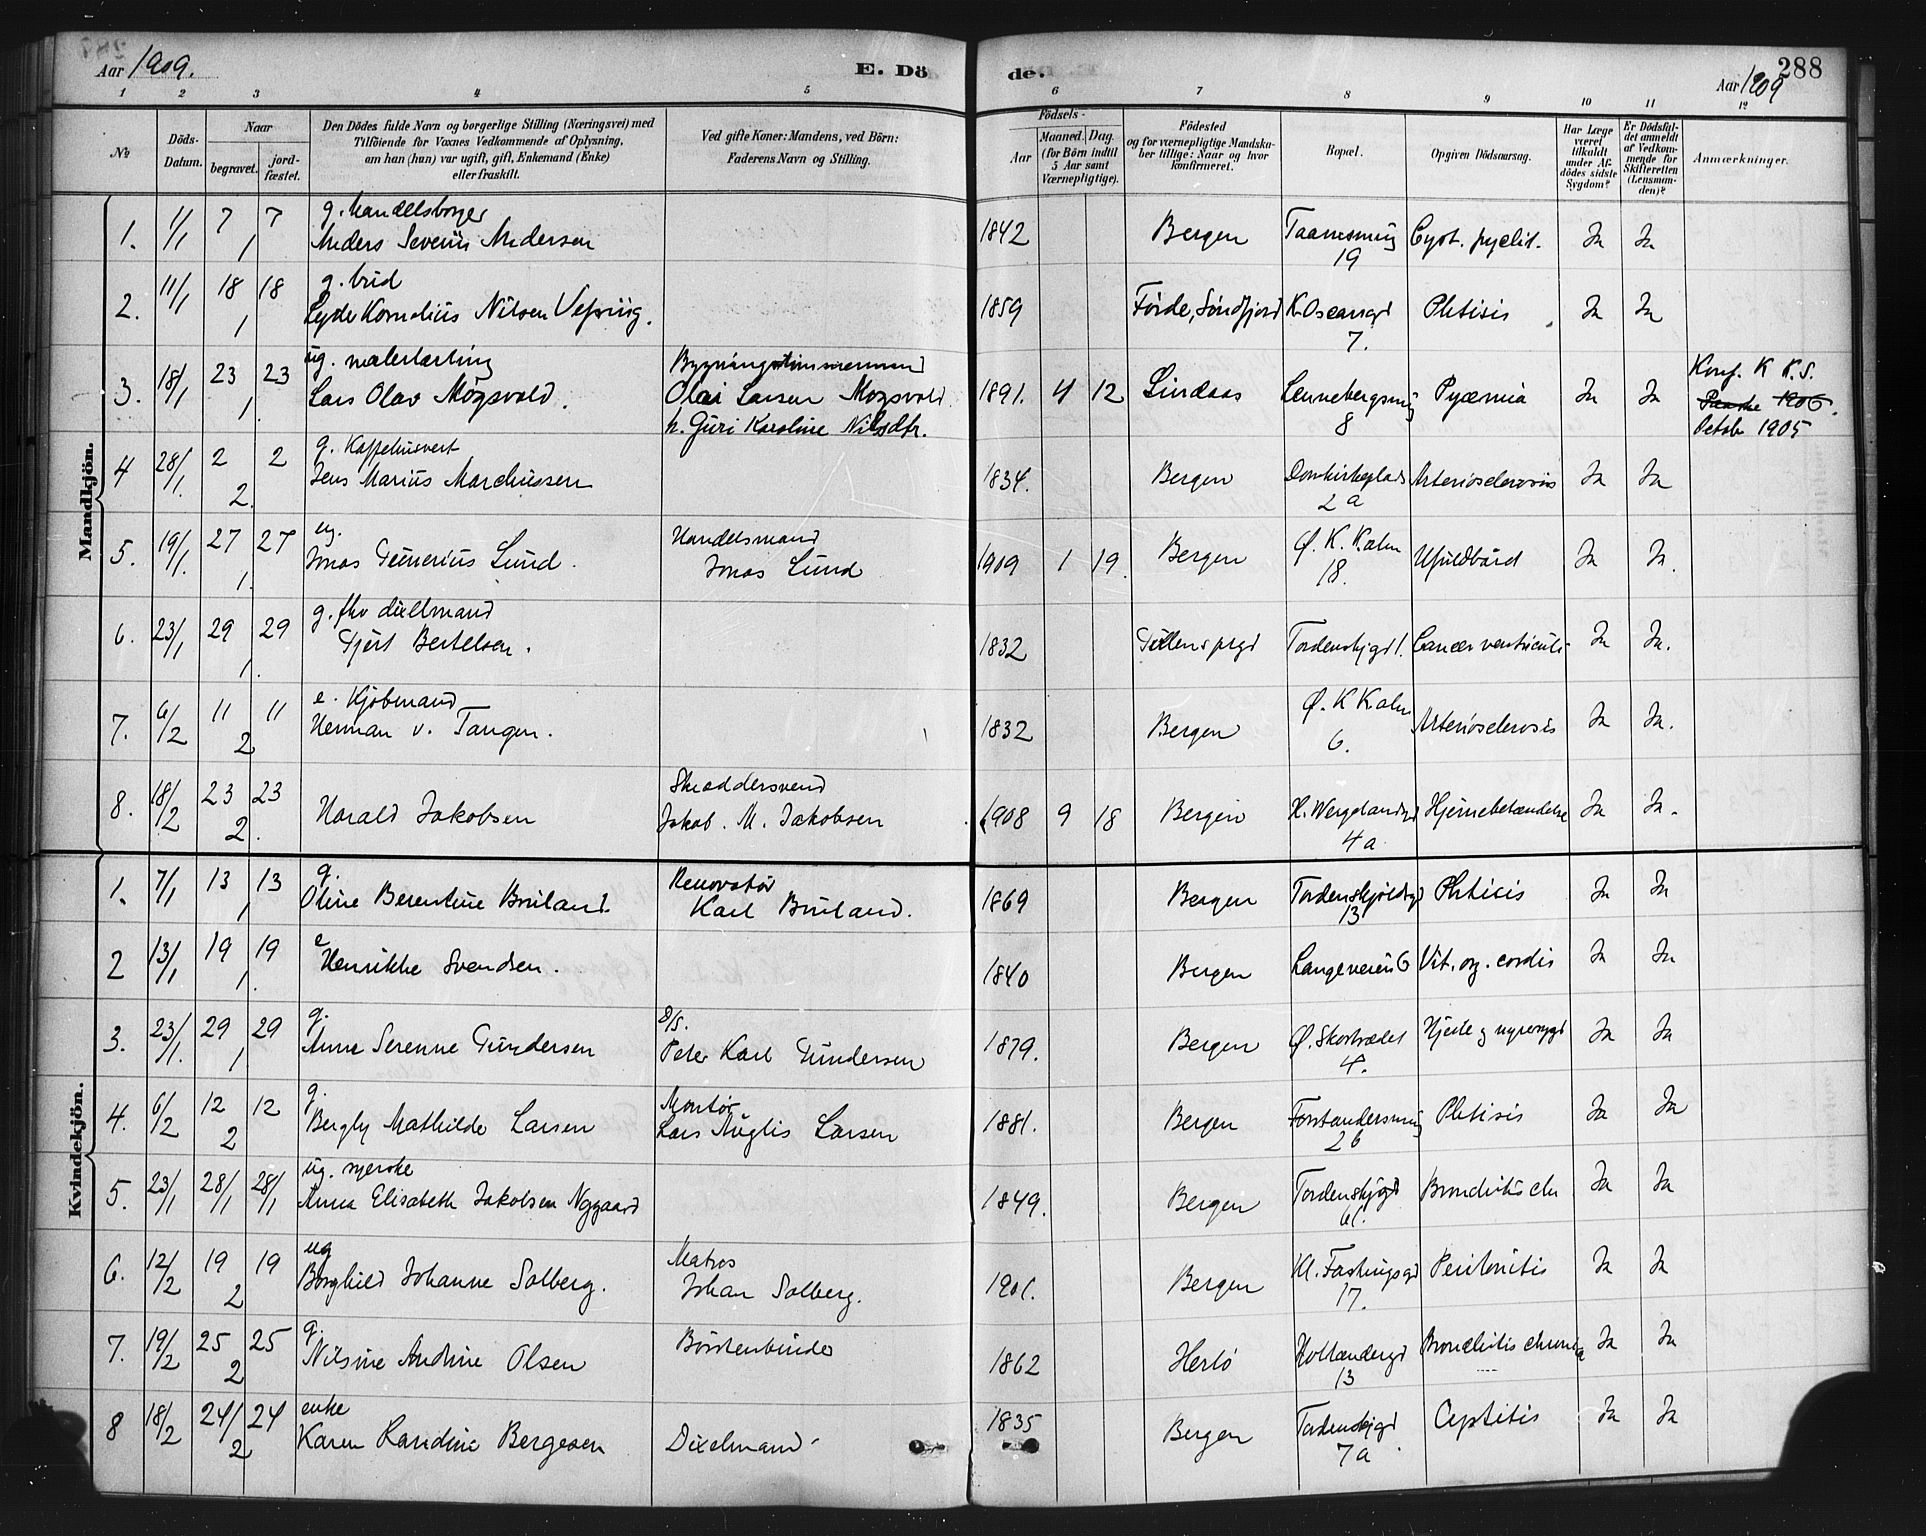 Aar 1909.
E. Dö
de.
288
Aar 1909
1 2 3 4 5 6 7 8 9 10 11 12
No
Döds-Datum.
Naar
begravet.
jord-fæstet.
Den Dödes fulde Navn og borgerlige Stilling (Næringsvei) med
Tilföiende for Voxnes Vedkommende af Oplysning,
om han (hun) var ugift, gift, Enkemand (Enke)
eller fraskilt.
Ved gifte Koner: Mandens, ved Börn:
Faderens Navn og Stilling.
Födsels-
Aar
Maaned. Dag.
(for Börn indtil
5 Aar samt
Værnepligtige).
Födested
og for værnepligtige Mandska-
ber tillige: Naar og hvor
konfirmeret.
Bopæl.
Opgiven Dödsaarsag.
Har Læge
været
tilkaldt
under Af-
dödes sidste
Sygdom?
Er Dödsfal-
det anmeldt
af Vedkom-
mende for
Skifteretten
(Lensman-
den)?
Anmærkninger.
Mandkjön.
1. 1/1 7/1 7 g. Handelsborger
Anders Severin Andersen 1842 Bergen 19 Cyst. pyelit. Ja Ja
2. 11/1 18/1 18 g. bud
Lyder Kornelius Nilsen Vefring. 1859 Førde, Søndfjord K. Oscarsgd 7. Phtisis Ja Ja
3. 18/1 23/1 23 ug. malerlærling
Lars Olav Mogsvold. Bygningstømmermand
Olai Larsen Mogsvold
h. Guri Karoline Nilsdtr. 1891. 4 12 Lindaas 8 Pyæmia Ja Ja Konf. K K.S.
1906.
Octob 1905
4 28/1. 2/2. 2 g. Kaffehusvert
Jens Marius Marchussen 1834. Bergen Domkirkeplads 2a Arteriosclerosis Ja Ja
5. 19/1. 27/1. 27 ug.
Jonas Gunerius Lund. Handelsmand
Jonas Lund 1909 1 19. Bergen Ø. K. Kalm 18. Ufuldbård Ja Ja.
6. 23/1 29/1. 29 g. fhv dixelmand
Gjert Bertelsen. 1832 Gullens prgd Tordenskjgd 1. Cancer ventriculi Ja Ja.
7. 6/2 11/2 11 e. Kjøbmand
Herman v. Tangen. 1832 Bergen Ø. K Kalm 6. Arteriosclerosis Ja Ja.
8. 18/2 23/2. 23 Harald Jakobsen Skræddersvend
Jakob. M. Jakobsen 1908 9 18 Bergen H. Wergelandsgd 4a Hjernebetændelse Ja Ja.
Kvindekjön.
1. 7/1 13/1 13 g.
Oline Berentine Bruland. Renovatør
Karl Bruland. 1869 Bergen Tordenskjoldsgd 13 Phtisis Ja Ja
2 13/1 19/1. 19 e
Henrikke Svendsen. 1840 Bergen Langeveien 6 Vit. org. cordis Ja Ja
3. 23/1. 29/1 29 g.
Anne Serenne Gundersen D/S.
Peter Karl Gundersen 1879. Bergen Ø. Skostrædet 4. Hjerte og nyresygd Ja Ja
4. 6/2 12/2 12 g.
Mathilde Larsen Montør
Lars Larsen 1881. Bergen Forstandersmug 26 Phtisis Ja Ja
5. 23/1 28/1 28/1 ug. syerske
Anna Elisabeth Jakobsen Nygaard 1849. Bergen Tordenskjgd 61. Bronchitis chr Ja Ja
6. 12/2 19/2 19 ug
Borghild Johanne Solberg. Matros
Johan Solberg. 1901. Bergen Kl. Fastingsgd 17. Peritonitis Ja Ja
7. 19/2 25/2 25 g.
Nilsine Andrine Olsen Børstenbinder 1862 Herlø Hollændergd 13 Bronchitis chronica Ja Ja
8 18/2 24/2 24 enke
Karen Randine Bergesen Dixelmand 1835 Bergen Tordenskjgd 7a Ja Ja